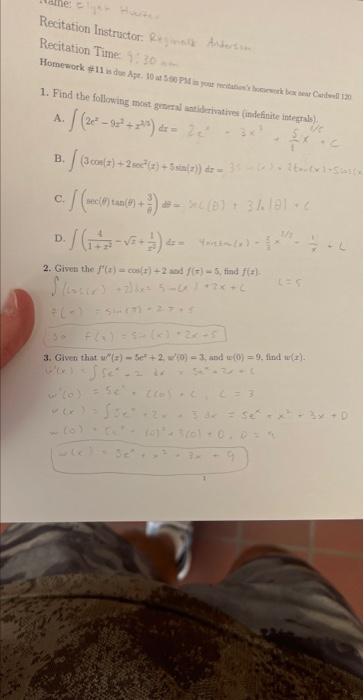 Name: Elijah
Recitation Instructor: Reginald Anderson
Recitation Time: 9:30 am
Homework #11 is due Apr. 10 at 5:00 PM in your recitation's homework box near Cardwell 120.
1. Find the following most general antiderivatives (indefinite integrals).
A. ∫(2e^x − 9x² + x^{2/3}) dx = 2e^x - 3x³ +
B. ∫(3cos(x) + 2sec²(x) + 5sin(x)) dx = 3sin(x) + 2tan(x) - 5cos(x)
C. ∫(sec(θ)tan(θ) + 3/θ) dθ = sec(θ) + 3ln|θ| + C
D. ∫(4/(1+x²) − √x + 1/x²) dx = - 2/3 x^{3/2} - 1/x + C
2. Given the f'(x) = cos(x) + 2 and f(π) = 5, find f(x).
∫(cos(x) + 2)dx = sin(x) + 2x + C
f(π) = sin(π) + 2π +
so f(x) = sin(x) + 2x + 5
3. Given that w''(x) = 5e^x + 2, w'(0) = 3, and w(0) = 9, find w(x).
w'(x) = ∫5e^x + 2 dx = 5e^x + 2x + C
w'(0) = 5e + 2(0) + C, C = 3
w(x) = ∫5e^x + 2x + 3 dx = 5e^x + x² + 3x + D
w(0) = + (0)² + 3(0) + D, D = 9
w(x) = 5e^x + x² + 3x + 9
1